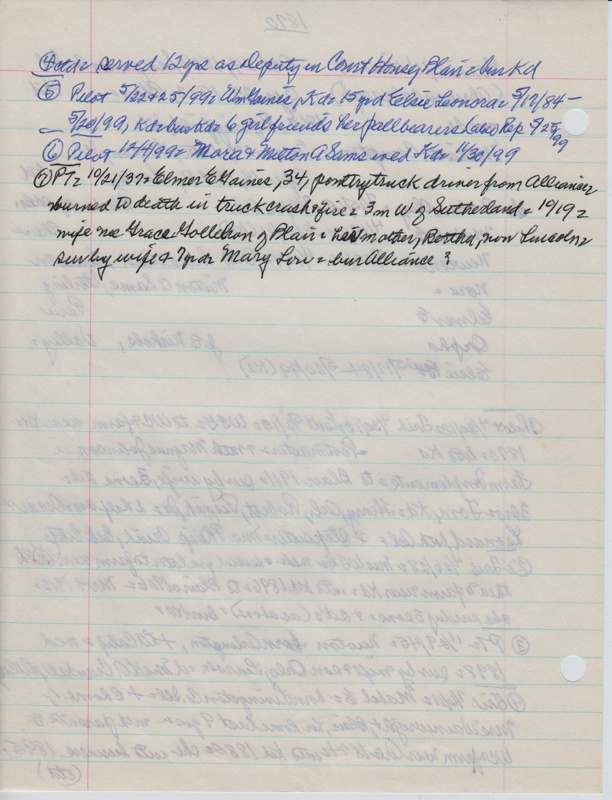 ④ ctd = served 12 yrs as Deputy in Court House, Blair = bur Kd
⑤ Pilot 5/22 & 25/99 = Wm Gaines, Kd = 15 yr d Elsie Leonora = 5/17/84 –
5/20/99, Kd = bur Kd = 6 girl friends her pallbearers (also Rep 5/25/99
⑥ Pilot 12/4/99 = Mora & Milton A Sams wed Kd = 11/30/99
⑦ PT = 10/21/37 = Elmer E Gaines, 34, poultry truck driver from Alliance
burned to death in truck crash & fire = 3 m W of Sutherland = 10/19 =
wife nee Grace Gollehon of Blair = his mother, Bertha, now Lincoln =
surv by wife & 7 yr d Mary Lou = bur Alliance ?